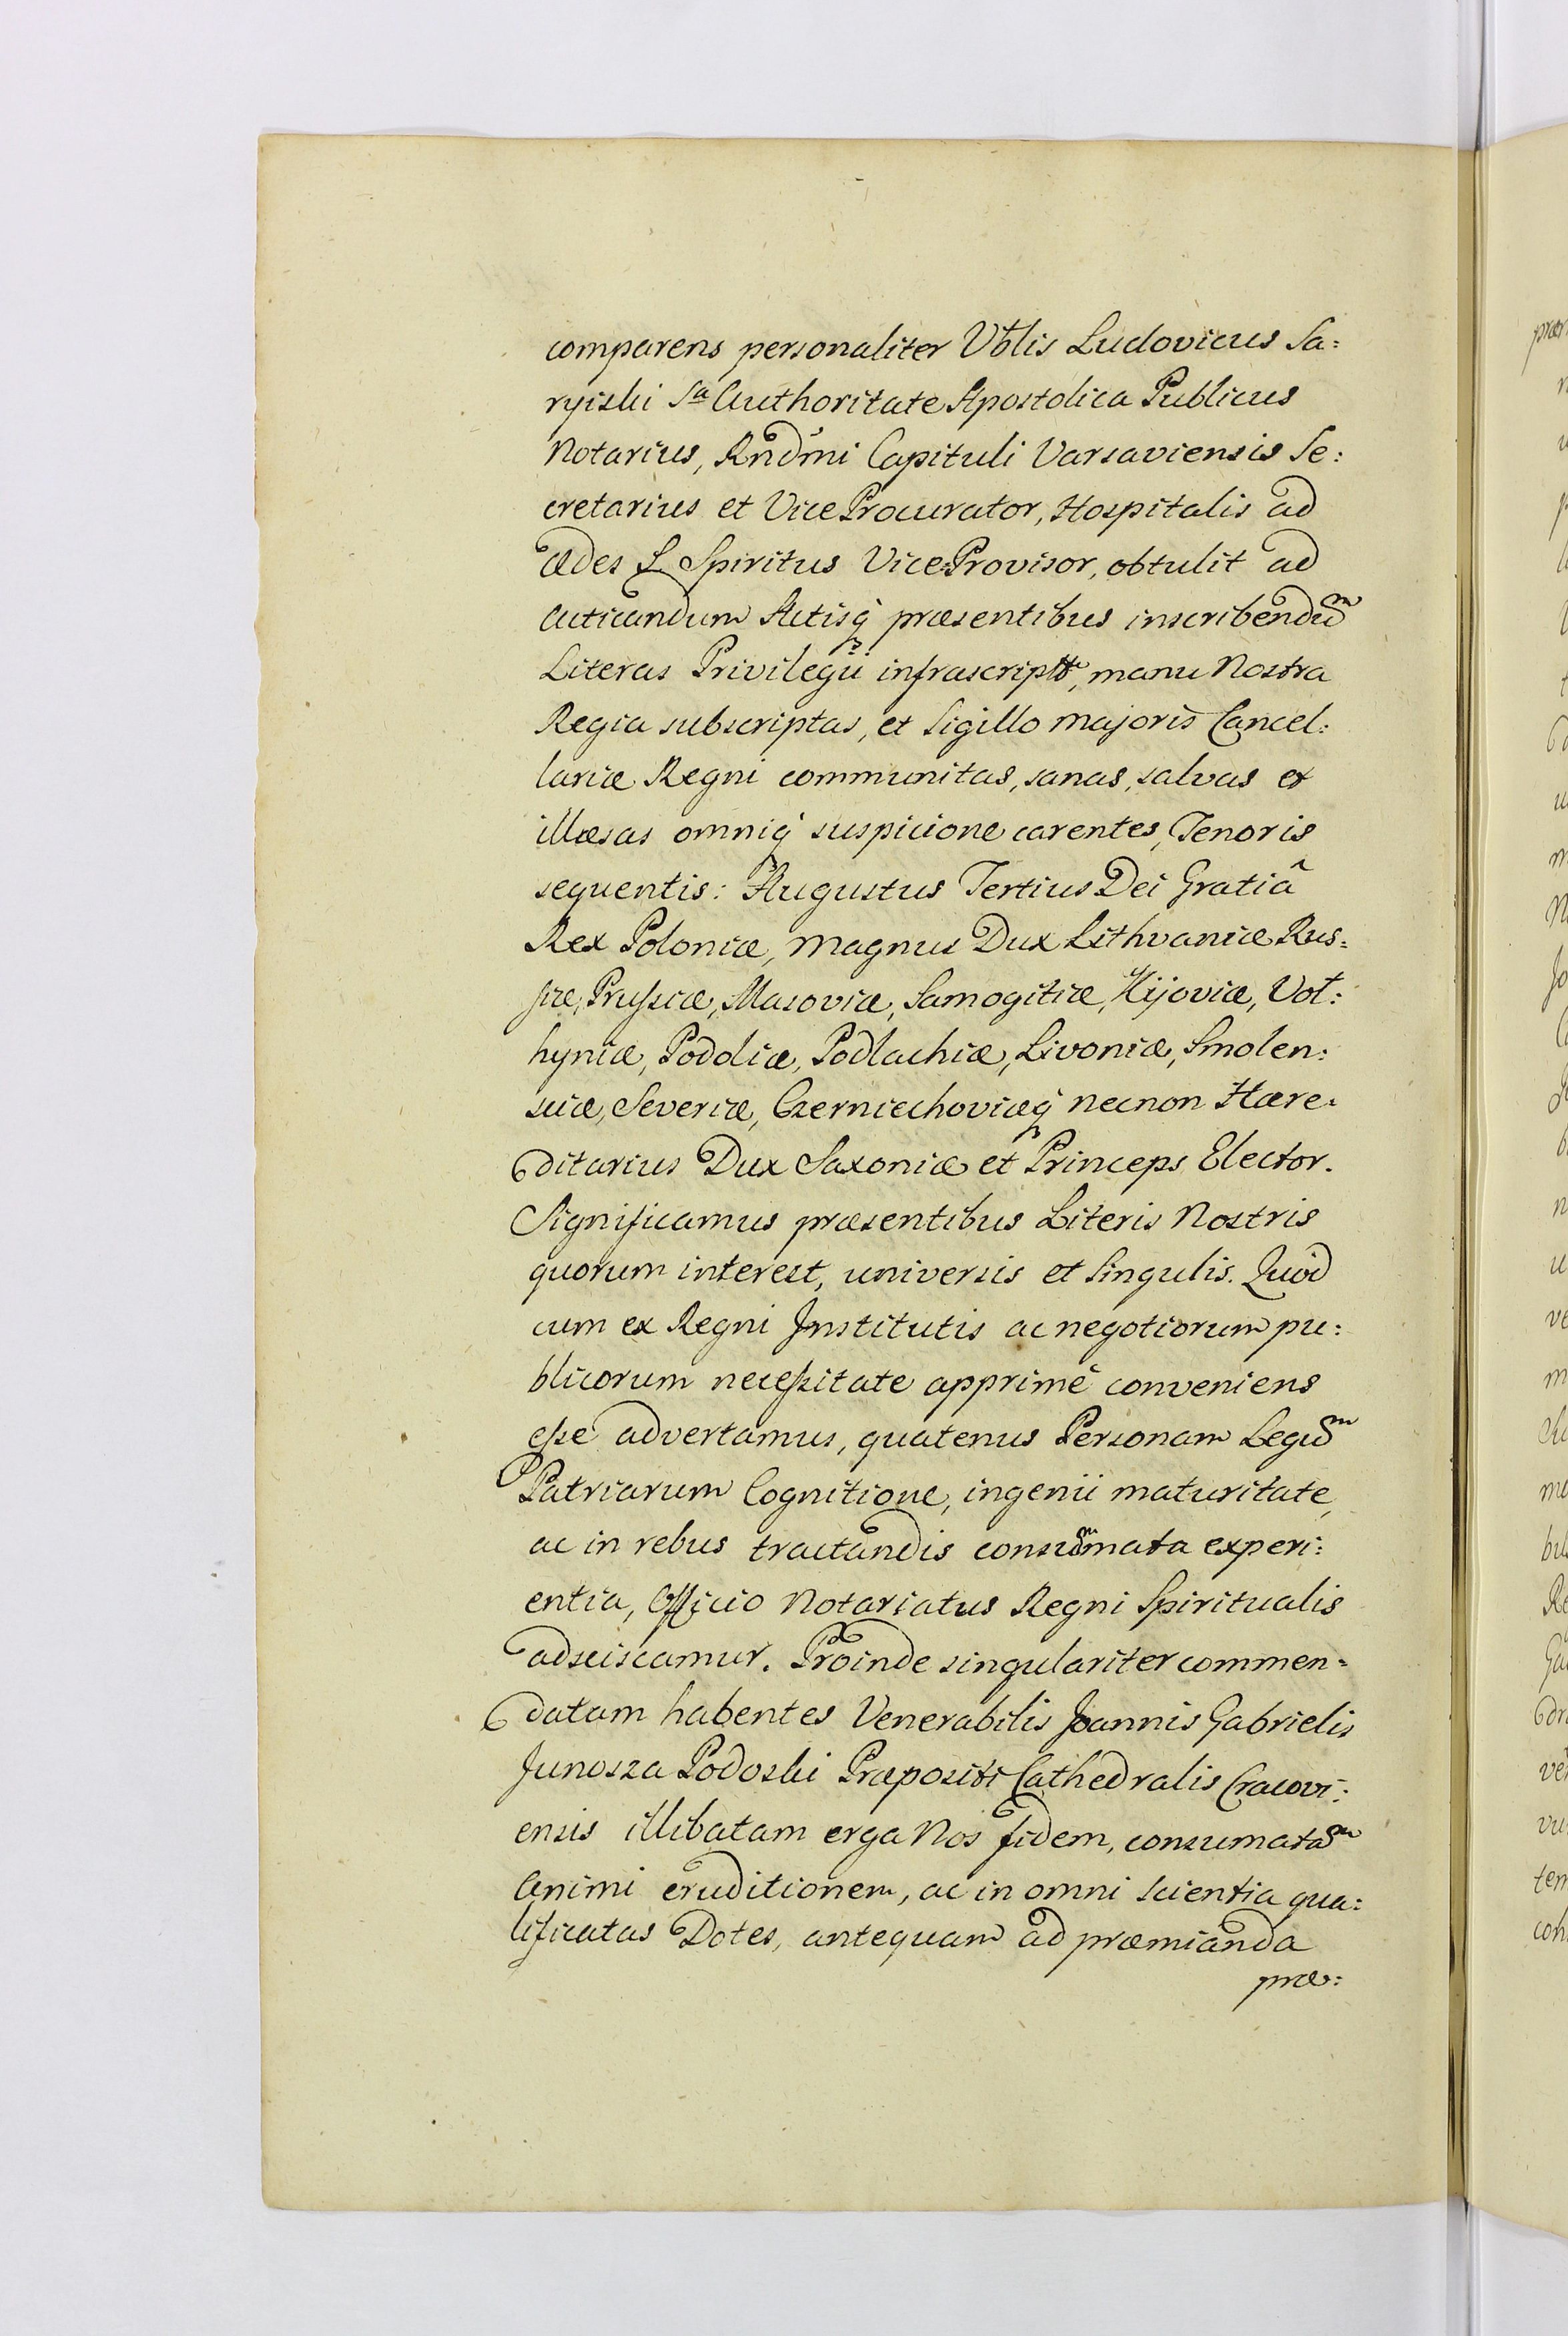 comparens personaliter Vblis Ludovicus Sa:
ryiski Sa Authoritate Apostolica Publicus
Notarius, Rndmi Capituli Varsaviensis Se:
cretarius et ViceProcurator, Hospitalis ad
ædes S. Spiritus Vice:Provisor, obtulit ad
acticandum Actisq præsentibus inscribendum
Literas Privilegii infrascriptt, manu Nostra
Regia subscriptas, et Sigillo majoris Cancel:
lariæ Regni communitas, sanas, salvas et
illæsas omniq suspicione carentes, Tenoris
sequentis: Augustus Tertius Dei Gratiâ
Rex Poloniæ, Magnus Dux Lithvaniæ Rus:
siæ, Prussiæ, Masoviæ, Samogitiæ, Kijoviæ, Vol:
hyniæ, Podoliæ, Podlachiæ, Livoniæ, Smolen:
sciæ, Severiæ, Czerniechoviæq necnon Hære:
ditarius Dux Saxoniæ et Princeps Elector.
Significamus præsentibus Literis Nostris
quorum interest, universis et Singulis. Quod
cum ex Regni Institutis ac negotiorum pu:
blicorum necessitate apprimè conveniens
esse advertamus, quatenus Personam Legum
Patriarum Cognitione, ingenii maturitate,
ac in rebus tractandis consummata experi:
entia, Officio Notariatus Regni Spiritualis
adsciscamur. Proinde singulariter commen=
datam habentes Venerabilis Joannis Gabrielis
Junosza Podoski Præpositi Cathedralis Cracovi:
ensis illibatam erga Nos fidem, consumatam
Animi eruditionem, ac in omni scientia qua:
lificatas Dotes, antequam ad præmianda
præ: